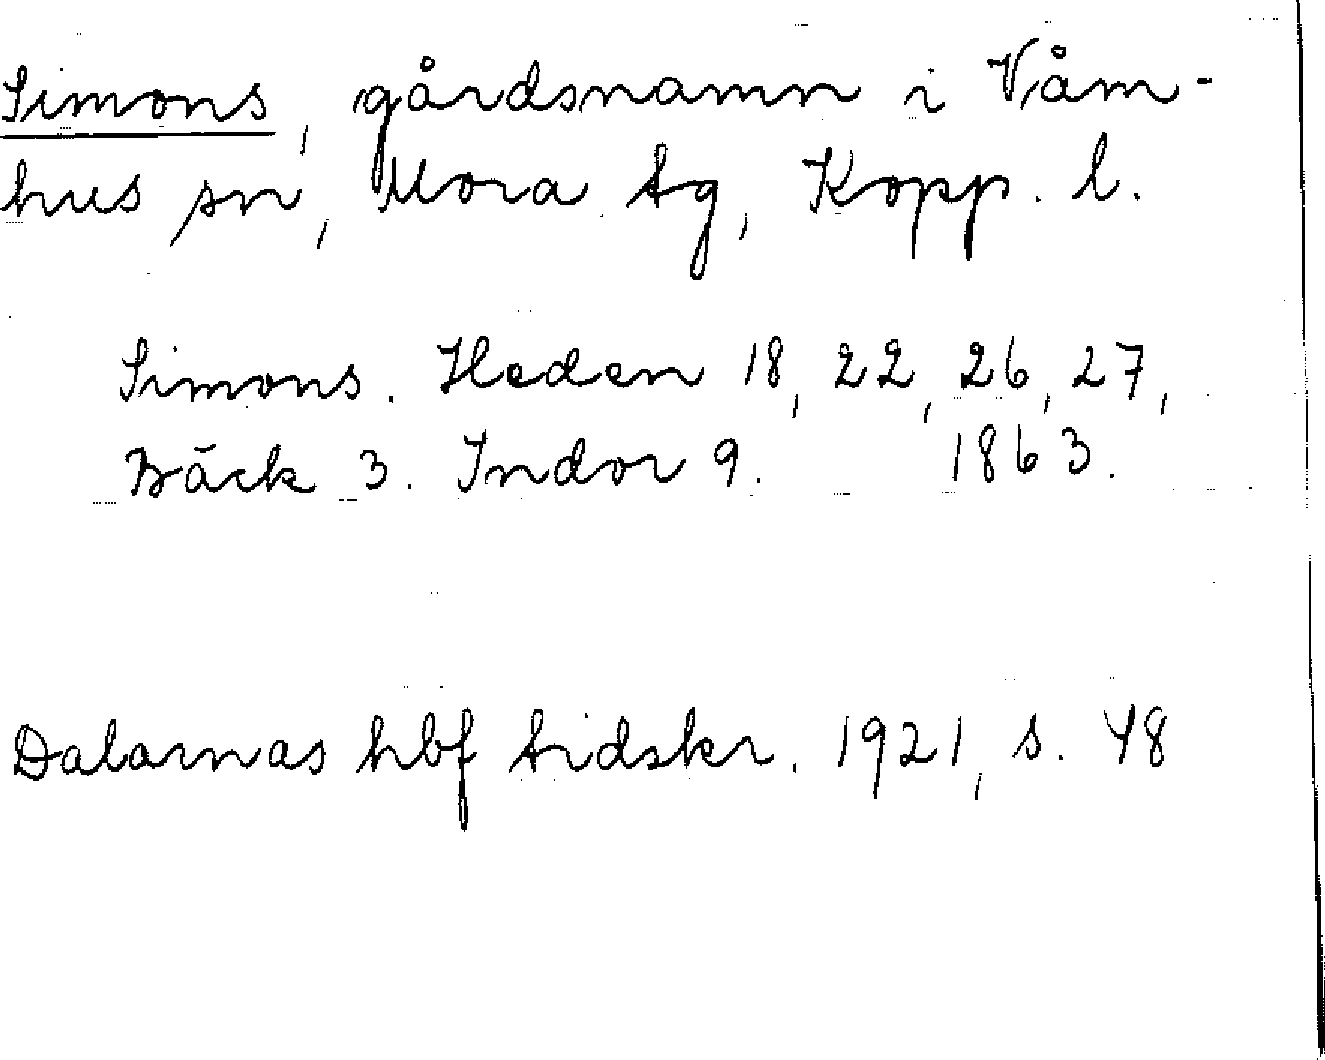 Simons, gårdsnamn i Våm-
hus sn, Mora tg, Kopp. l.
Simons. Heden 18, 22, 26, 27,
Bäck 3. Indor 9. 1863.
Dalarnas hbf tidskr. 1921, s. 48